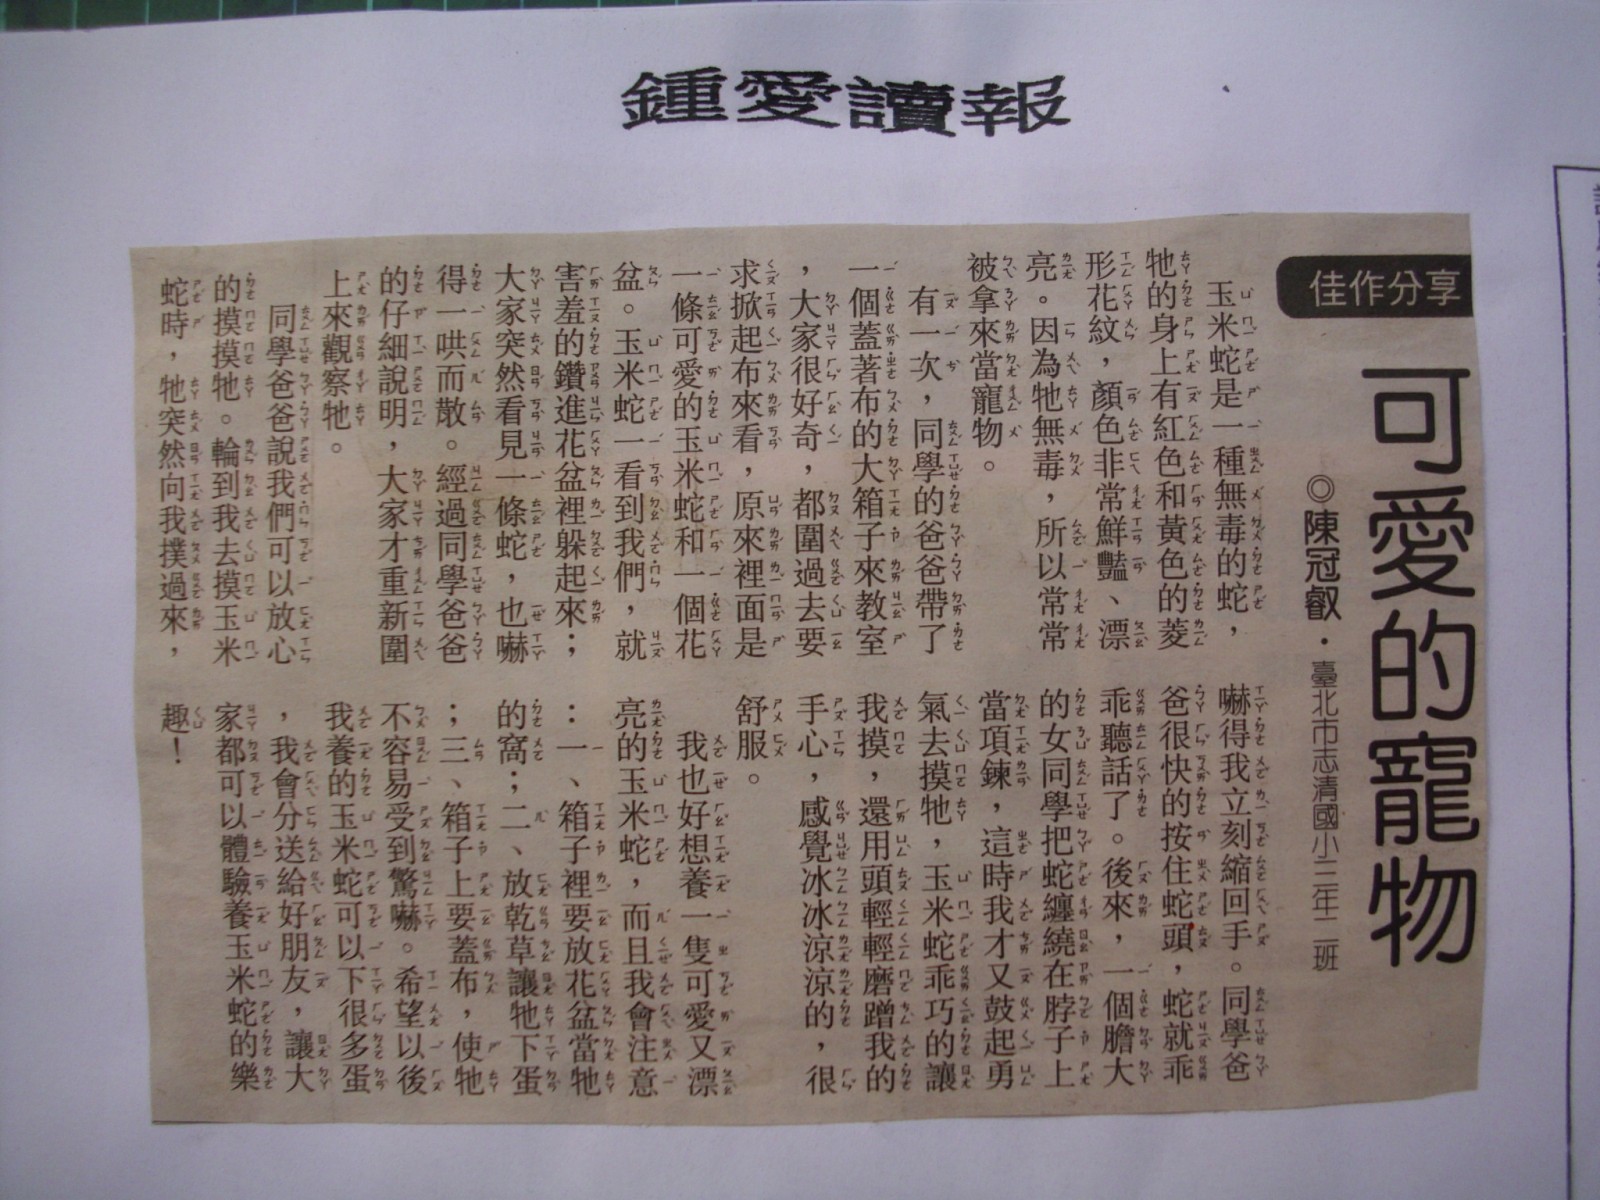 鍾愛讀報
佳作分享
可愛的寵物
◎陳冠叡・臺北市志清國小三年二班
玉米蛇是一種無毒的蛇，
牠的身上有紅色和黃色的菱
形花紋，顏色非常鮮豔、漂
亮。因為牠無毒，所以常常
被拿來當寵物。
有一次，同學的爸爸帶了
一個蓋著布的大箱子來教室
，大家很好奇，都圍過去要
求掀起布來看，原來裡面是
一條可愛的玉米蛇和一個花
盆。玉米蛇一看到我們，就
害羞的鑽進花盆裡躲起來；
大家突然看見一條蛇，也嚇
得一哄而散。經過同學爸爸
的仔細說明，大家才重新圍
上來觀察牠。
同學爸爸說我們可以放心
的摸摸牠。輪到我去摸玉米
蛇時，牠突然向我撲過來，
嚇得我立刻縮回手。同學爸
爸很快的按住蛇頭，蛇就乖
乖聽話了。後來，一個膽大
的女同學把蛇纏繞在脖子上
當項鍊，這時我才又鼓起勇
氣去摸牠，玉米蛇乖巧的讓
我摸，還用頭輕輕磨蹭我的
手心，感覺冰冰涼涼的，很
舒服。
我也好想養一隻可愛又漂
亮的玉米蛇，而且我會注意
：一、箱子裡要放花盆當牠
的窩；二、放乾草讓牠下蛋
；三、箱子上要蓋布，使牠
不容易受到驚嚇。希望以後
我養的玉米蛇可以下很多蛋
，我會分送給好朋友，讓大
家都可以體驗養玉米蛇的樂
趣！